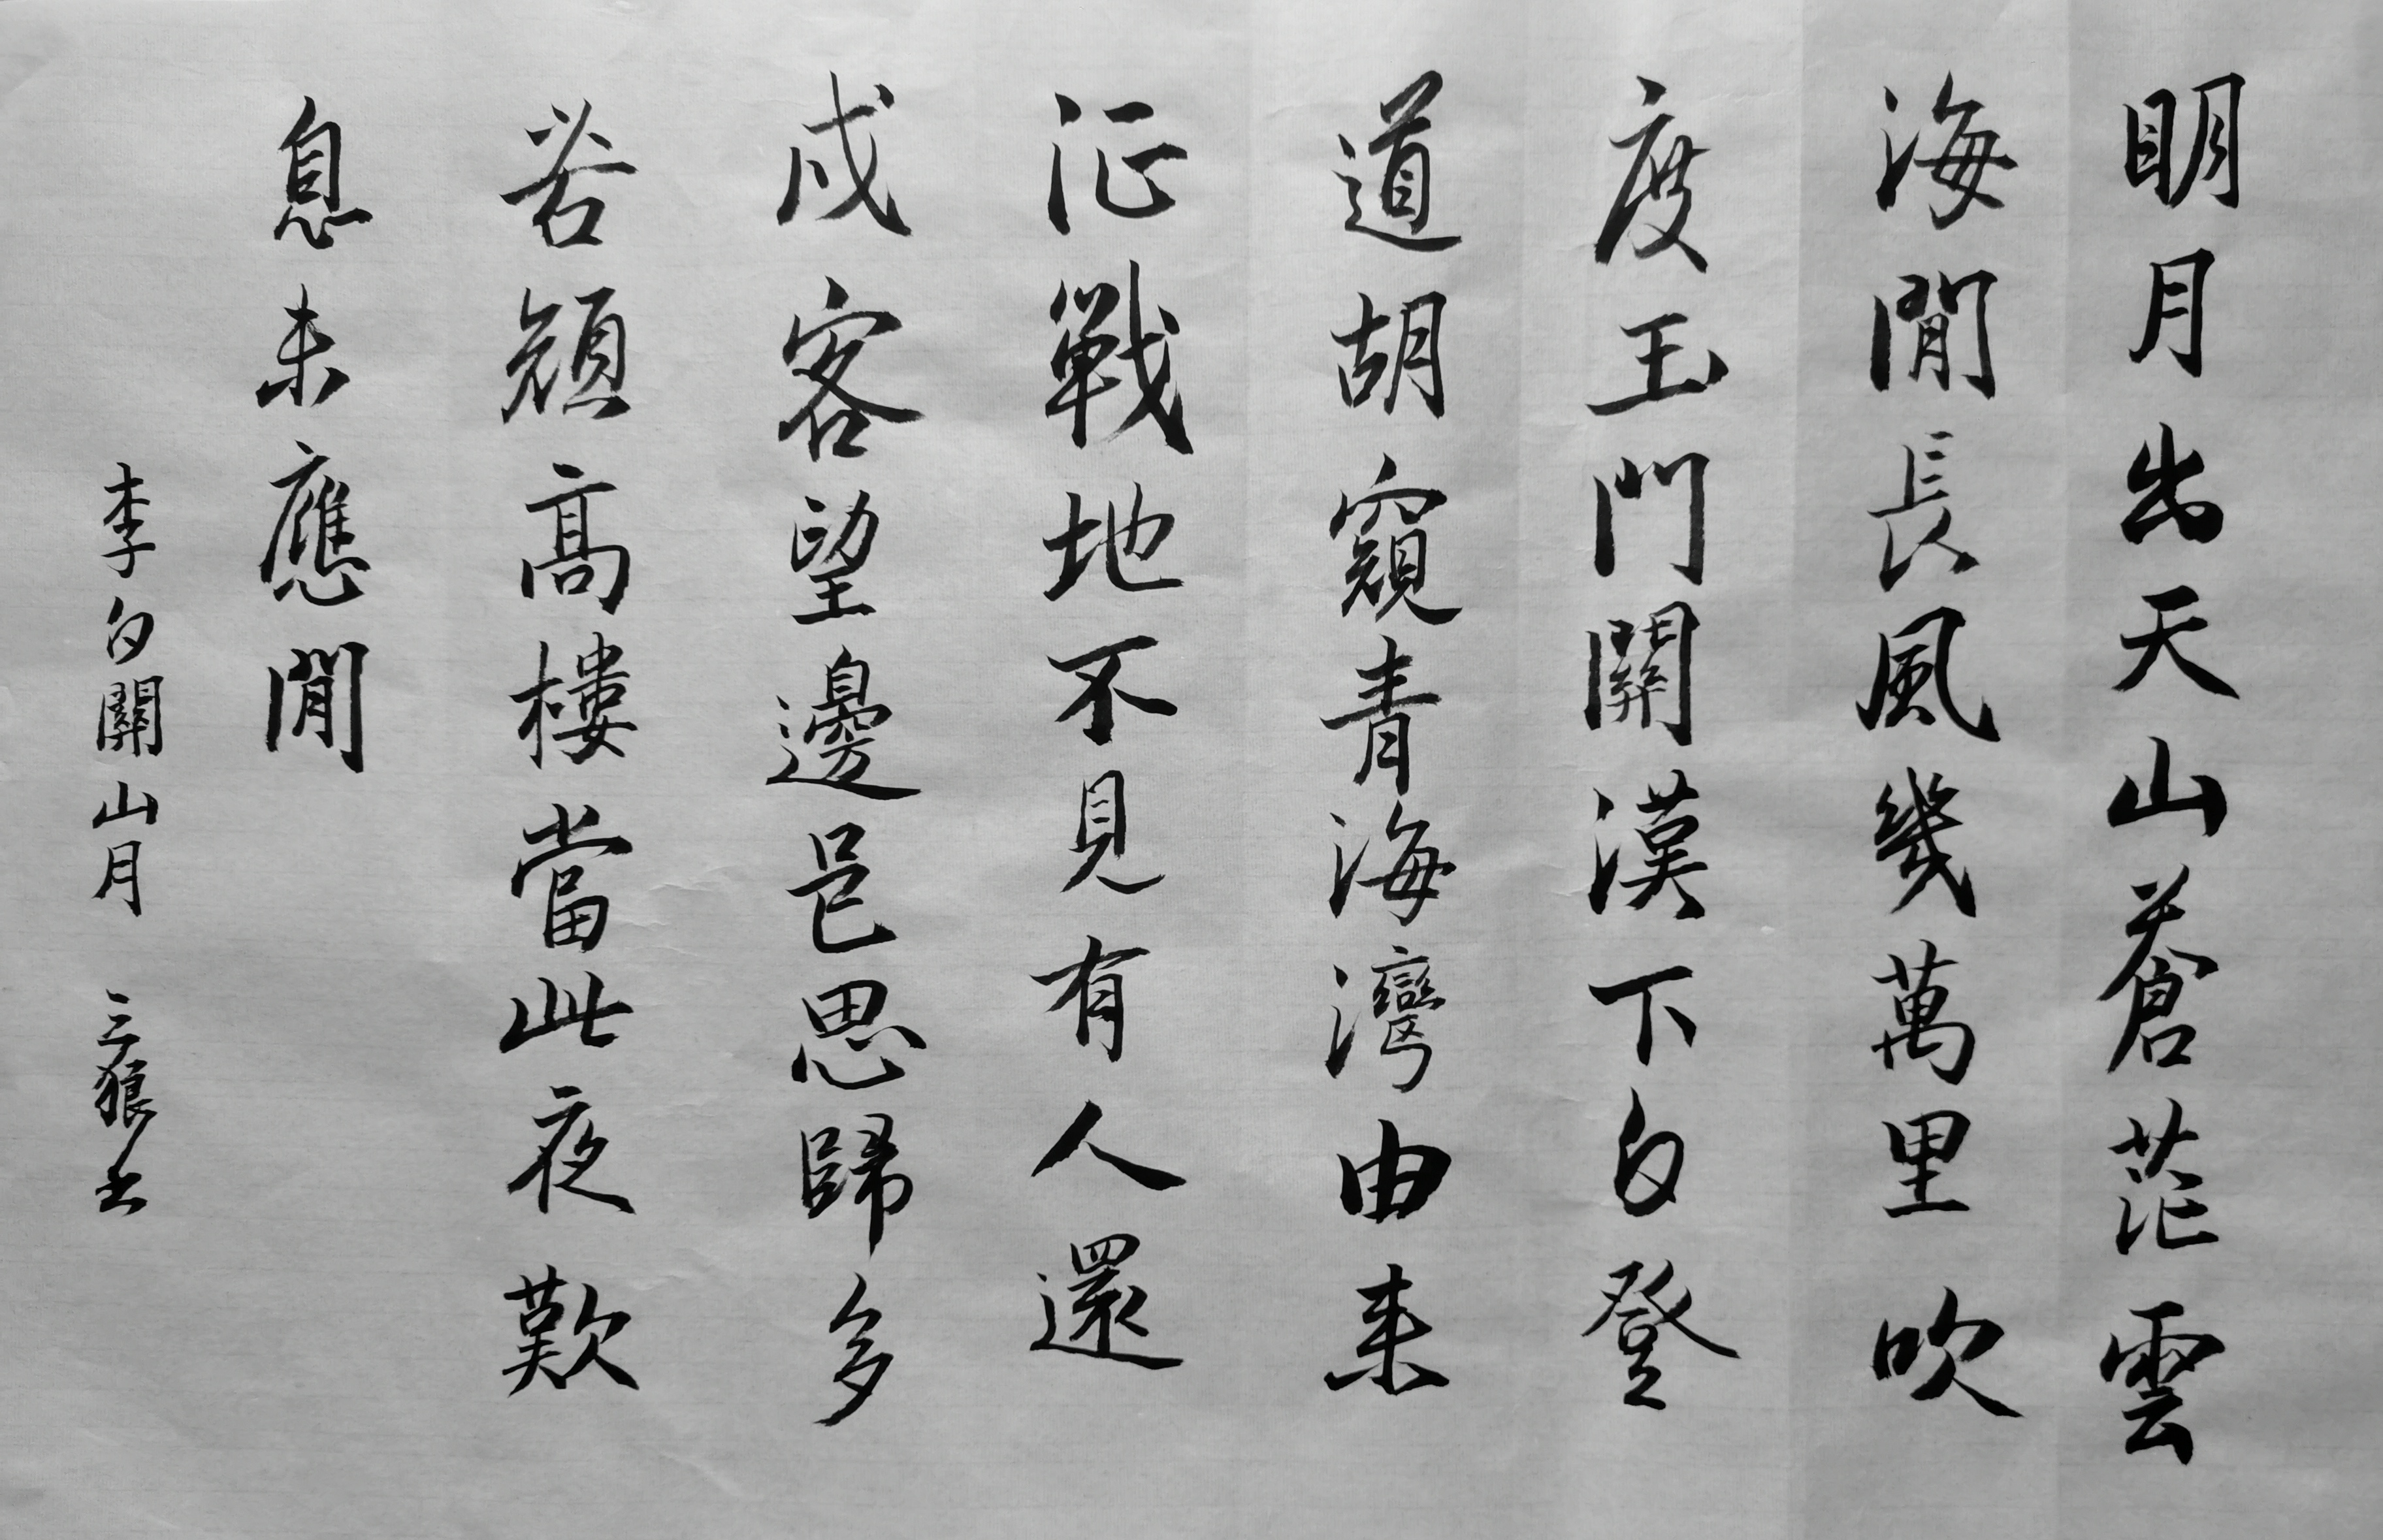 明月出天山蒼茫雲
海間長風幾萬里吹
度玉門關漢下白登
道胡窺青海灣由来
征戰地不見有人還
戍客望邊邑思歸多
苦顔高樓當此夜歎
息未應閒
李白關山月 三狼书